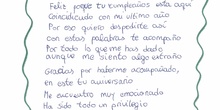 Feliz porque tu cumpleaños está aquí
Coincidiendo con mi último año
Por eso quiero despedirte así
Con estas palabras te acompaño
Por todo lo que me has dado
aunque me siento algo extraño
Gracias por haberme acompañado,
en este tu aniversario
Me encuentro muy emocionado
Ha sido todo un privilegio